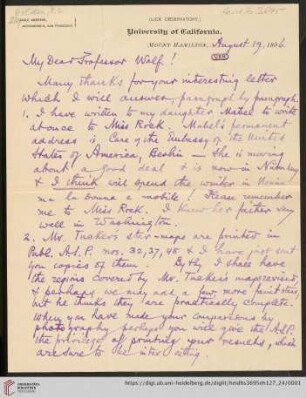 (LICK OBSERVATORY)
University of California.
MOUNT HAMILTON, August 19, 1896
My Dear Professor Wolf!
Many thanks for your interesting letter
which I will answer, paragraph by paragraph.
1. I have written to my daughter Mabel to write
at once to Miss Rock. Mabel's permanent
address is Care of the Embassy of the United
States of America, Berlin — She is moving
about a good deal & is now in
& I think will spend the winter in
ma la donna e mobile! Please remember
me to Miss Rock. I knew her father very
well in Washington.
2. Mr. Tucker's star-maps are printed in
Publ. A.S.P. nos. 32, 37, 45 & I have just sent
you copies of them. By & by I shall have
the regions covered by Mr. Tucker's maps revised,
& perhaps he will add a few more faint stars
but he thinks they are practically complete.
When you have made your comparisons by
photography perhaps you will give the A.S.P.
the privilege of printing your results, which
are sure to be interesting.
https://digi.ub.uni-heidelberg.de/diglit/heidhs3695eh127_24/0001